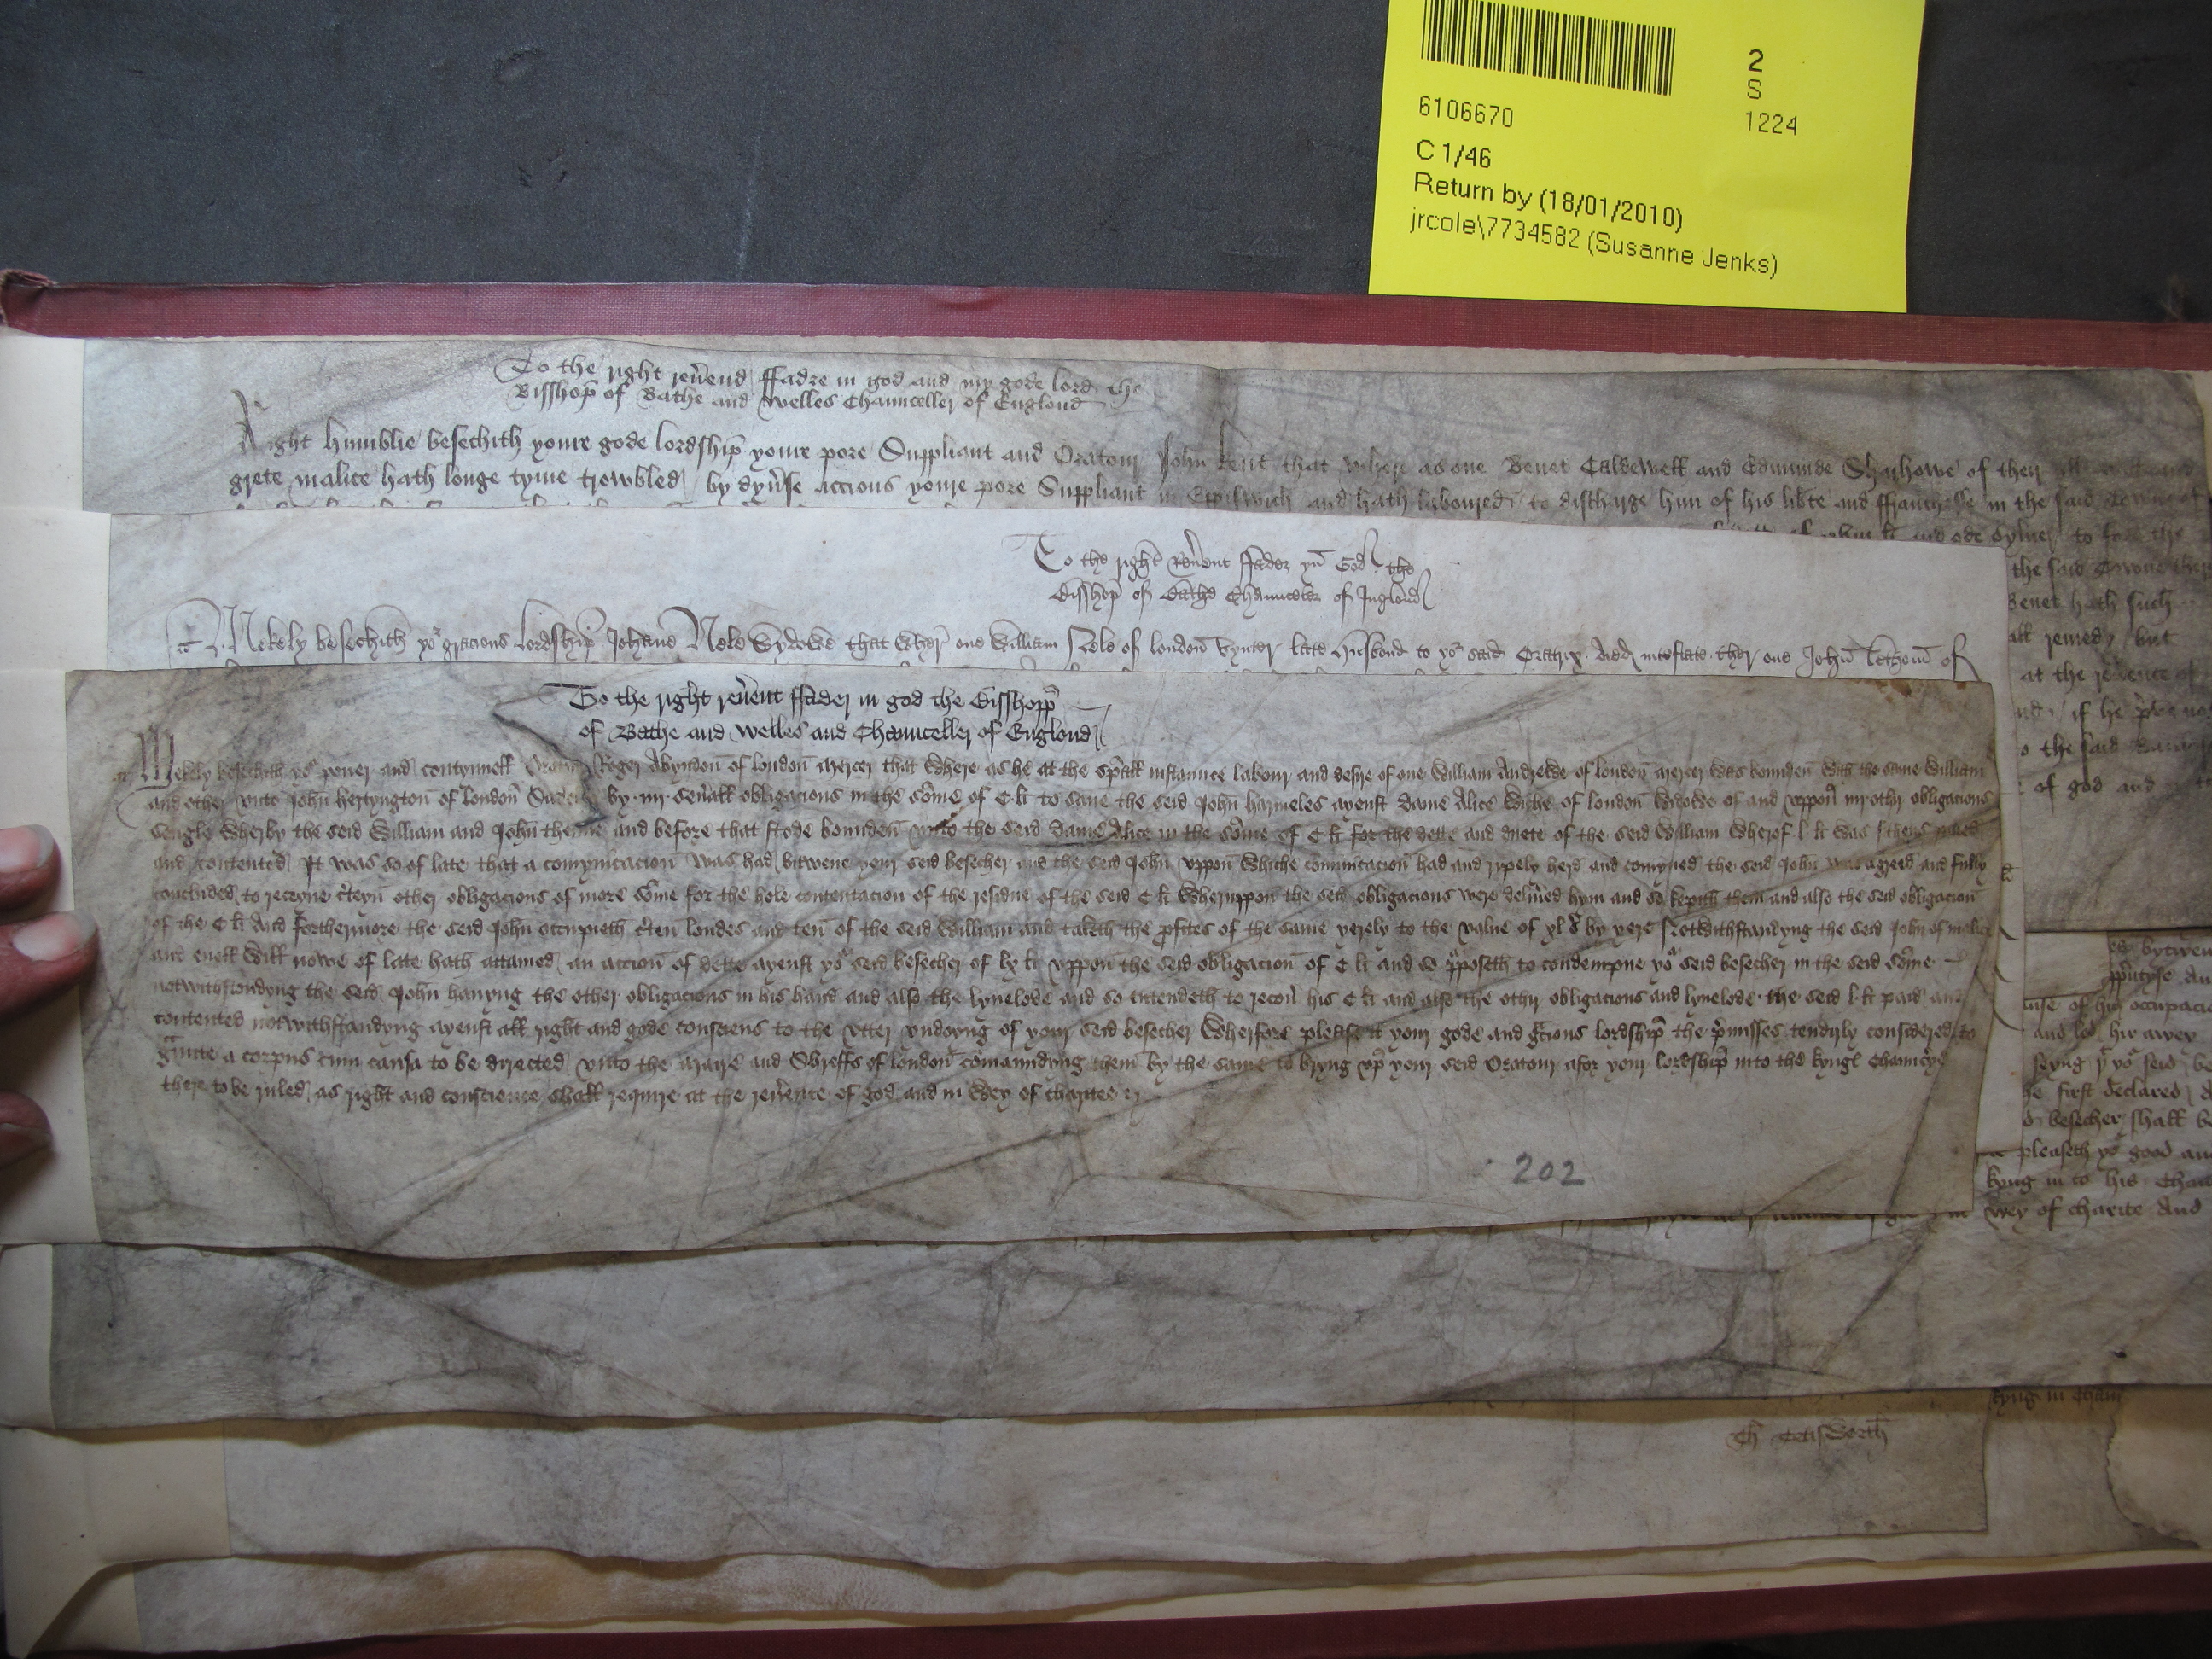 2
S
6106670
1224
C 1/46
Return by (18/01/2010)
jrcole\7734582 (Susanne Jenks)
To the right reu'end ffadre in god and my gode lord the
Bisshop of Bathe and Welles Chaunceller of Englond
Right humblie besechith youre gode lordship youre pore Suppliant and Oratour John Kent that where as one Benet Caldewell and Edmunde Sharhowe of their
grete malice hath longe tyme trowbled by dyu'se accions youre pore Suppliant in and hath laboured to discharge hym of his lib'te and ffraunchesse in the said Towne of
To the right Reu'ent ffader yn God the
Bisshop of Bathe Chaunceler of Inglond
Mekely besechith yor gracious lordship Johane Nele Wydowe that Wher one William Nele of london Vynter late husbond to yor said Oratrix died intestate ther one John of
the said Towne
Benet hath such
all remedy but
at the reu'ence of
if he p've
o the said
of god and
To the right reu'ent ffader in god the Bisshopp
of Bathe and Welles and Chaunceller of Englond
Mekely besechith yor pouer and contynuell Oratour Roger Abyndon of london mercer that Where as he at the sp'all instaunce labour and desire of one William Andrewe of london mercer was bounden With the same William
and other vnto John hertyngton of london Sadeler by iiij seu'all obligacions in the so'me of C li to saue the seid John harmeles ayenst dame Alice Wiche of london Widowe of and vppon iiij othir obligacions
sengle Wherby the seid William and John thenne and before that stode bounden vnto the seid dame Alice in the so'me of C li for the dette and duete of the seid William Wherof l li was thens paied
and contented It was so of late that a comynicacion was had bitwene your seid besecher and the seid John vppon Whiche comunicacion had and ripely herd and comyned the seid John was agreed and fully
concluded to receyue c'teyn other obligacions of more so'me for the hole contentacion of the residue of the seid C li Wheruppon the seid obligacions were delyu'ed hym and so kepith them and also the seid obligacion
of the C li And forthermore the seid John occupieth c'ten londes and ten' of the seid William and taketh the profites of the same yerely to the value of xl s by yere Notwithstandyng the seid John of malice
and euell Will nowe of late hath attamed an accion of dette ayenst yor seid besecher of lx li vppon the seid obligacion of C li and so p'poseth to condempne yor seid besecher in the seid so'me
notwithstondyng the seid John hauyng the other obligacions in his hand and also the lyuelode and so entendeth to recou' his C li and also the othir obligacions and lyuelode the seid l li paid and
contented notwithstandyng ayenst all right and gode consciens to the vtter vndoyng of your seid besecher Wherfore please it your gode and gracious lordship the p'misses tendirly considered to
graunte a corpus cum causa to be directed vnto the maire and Shireffs of london comaundyng them by the same to bryng vp your seid Oratour afor your lordship into the kynges Chauncerye
there to be ruled as right and conscience shall require at the reu'ence of god and in Wey of charitee
202
bytwen
of his occupacio
and led hir awey
seyng yt yor seid be
first declared
besecher shall be
pleaseth yor good and
kyng in to his Chau
wey of charite And
kyng in Chau
Th Tetisworth